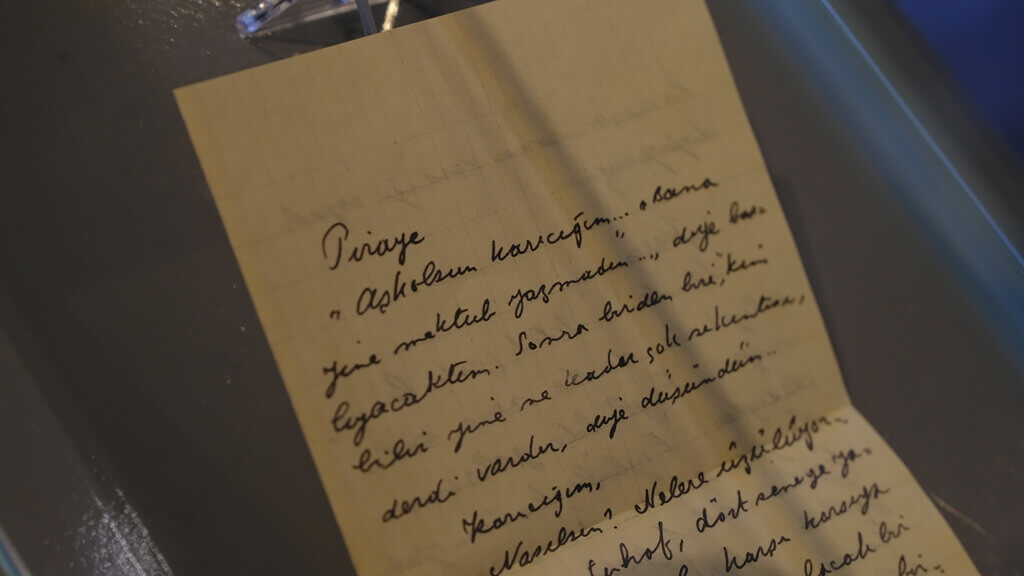 Piraye
„Aşkolsun karıcığım...„ „Bana
yine mektub yazmadın...„ diye baş-
lıyacaktım. Sonra birden bire, kim
bilir yine ne kadar çok sıkıntısı,
derdi vardır, diye düşündüm...
Karıcığım,
Nasılsın? Nelere üzülüyor-
dört seneye ya-
karşı karşıya
bir